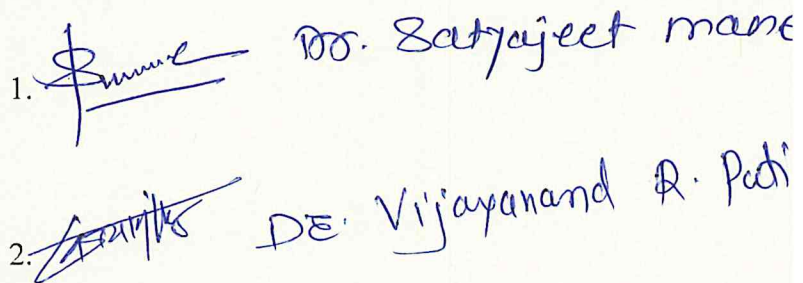 1. Dr. Satyajeet mane
2. DE. Vijayanand R. Pati